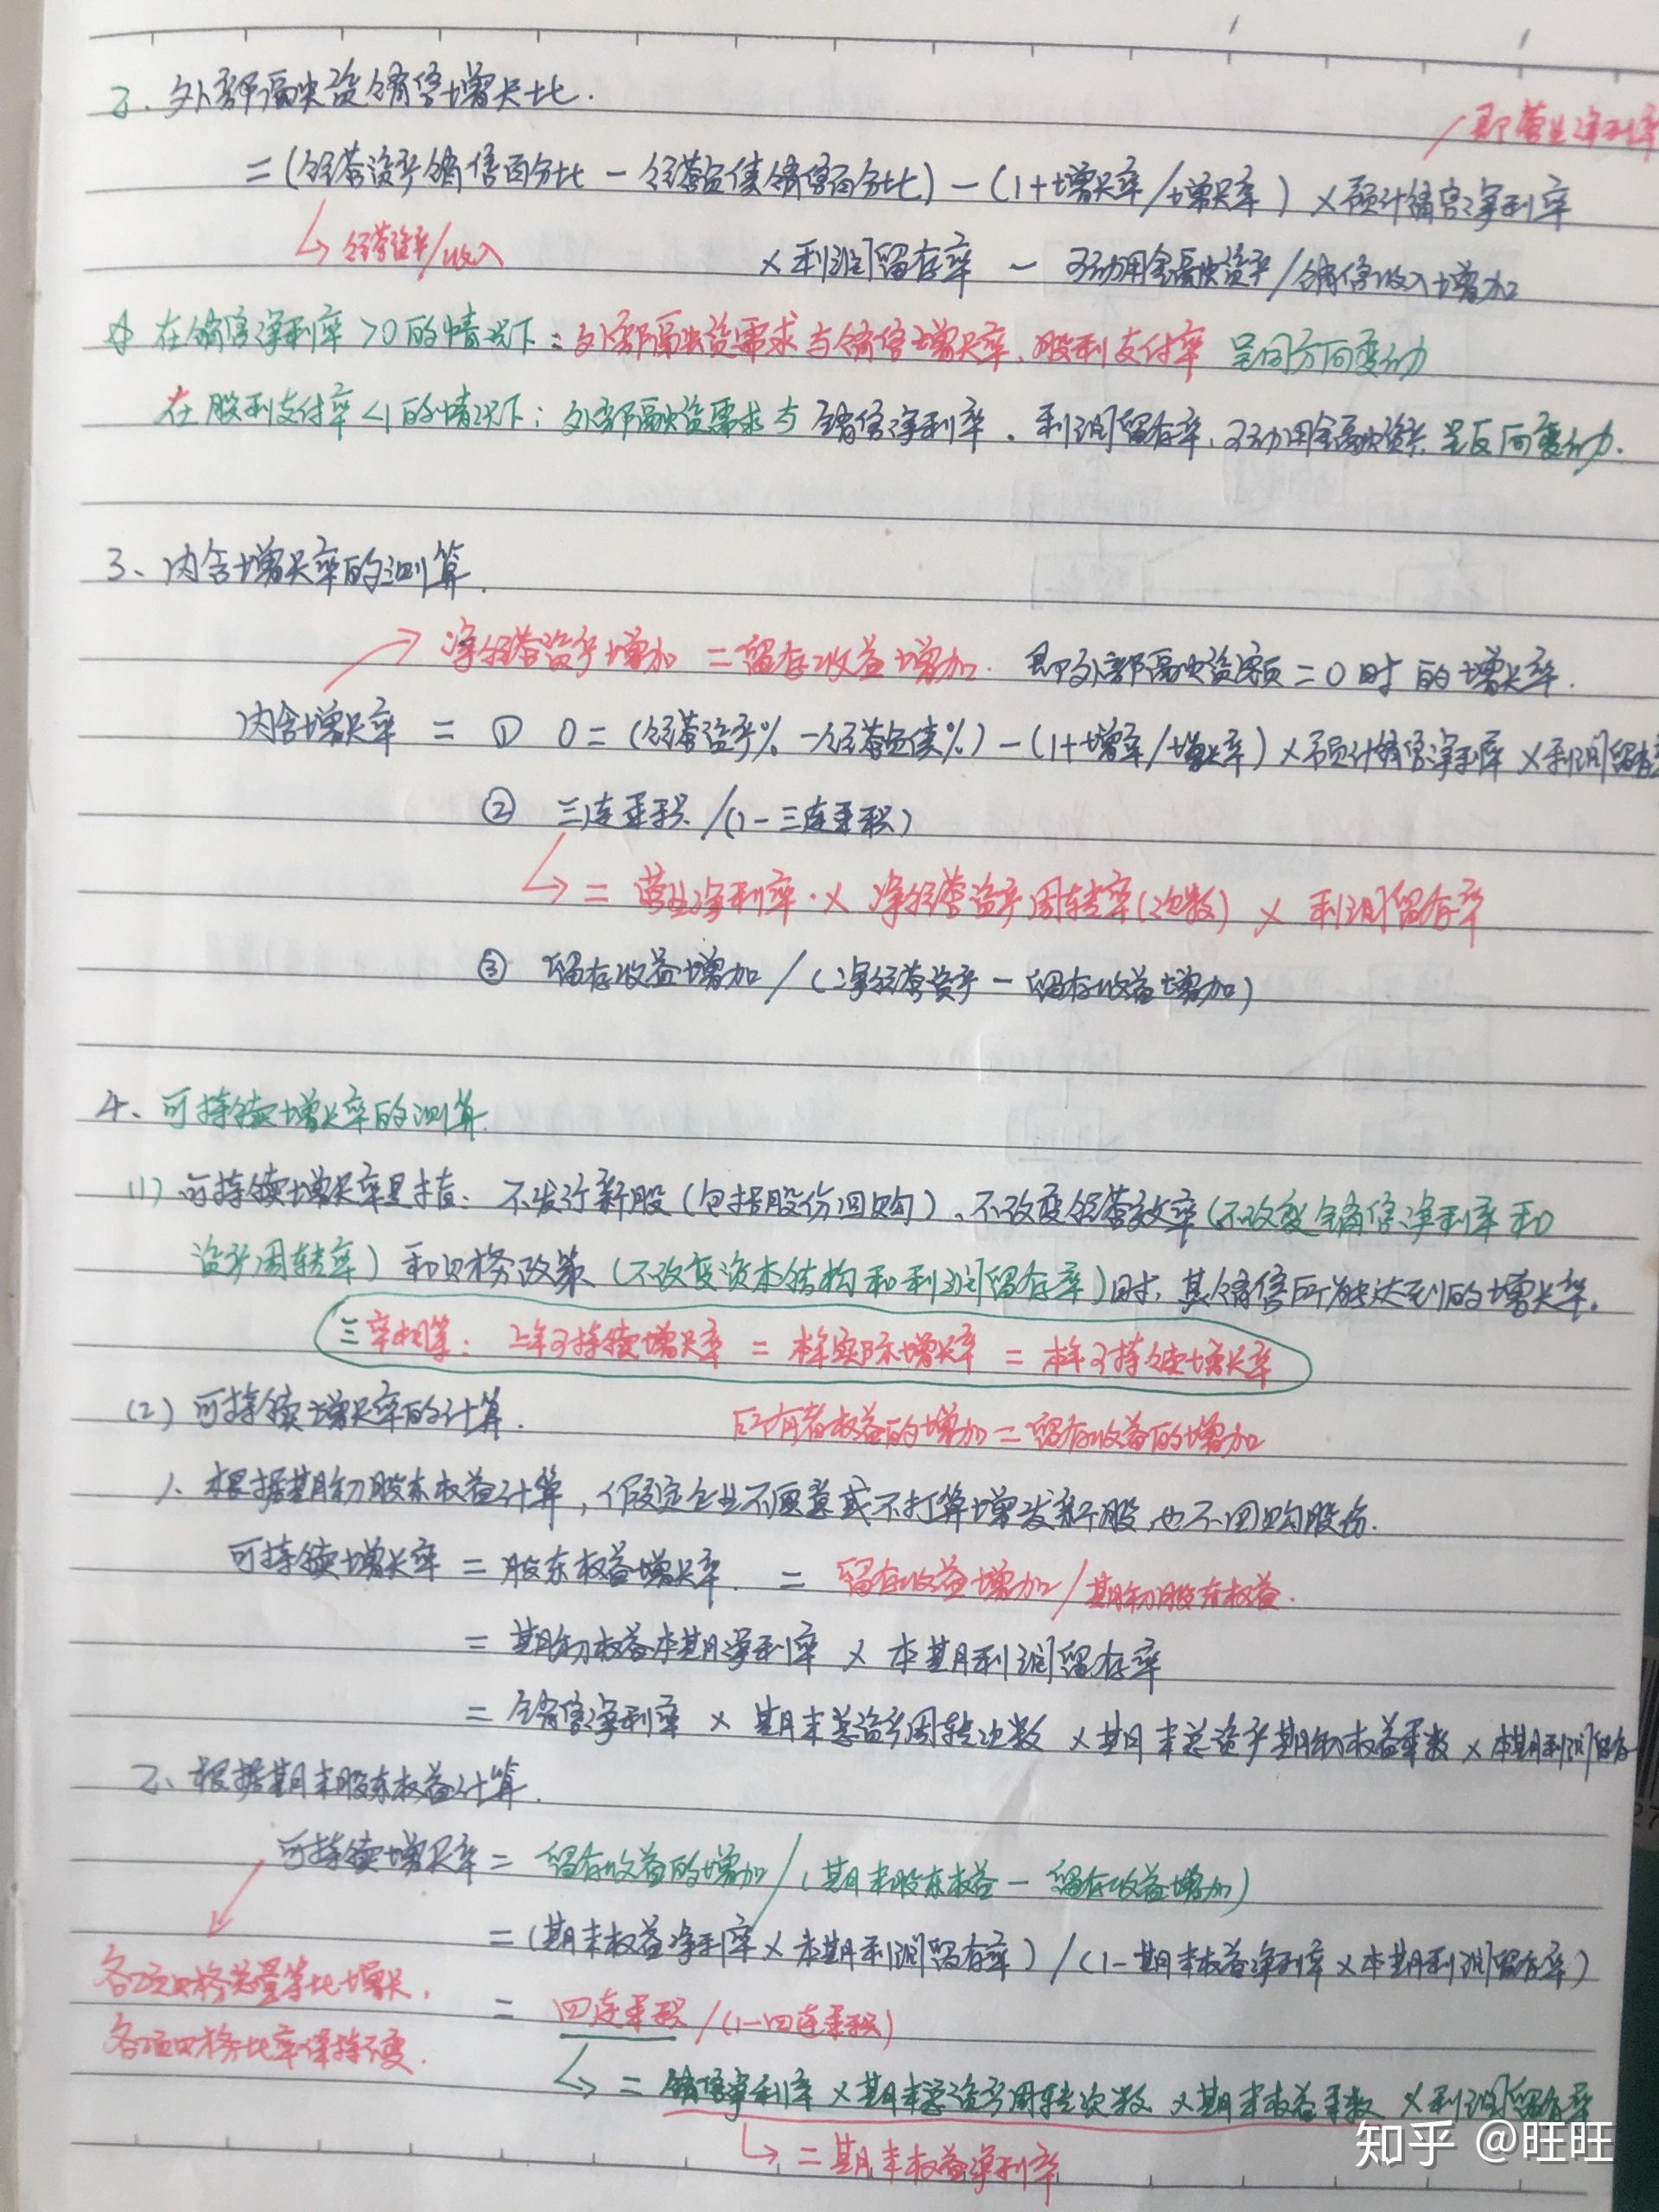 2、外部融资销售增长比.
即营业净利率
=(经营资产销售百分比-经营负债销售百分比)-(1+增长率/增长率)×预计销售净利率
↳经营资产/收入
×利润留存率-可动用金融资产/销售收入增加
☆在销售净利率>0的情况下:外部融资需求与销售增长率、股利支付率呈同方向变动
在股利支付率<1的情况下:外部融资需求与销售净利率、利润留存率、可动用金融资产呈反向变动.
3、内含增长率的测算.
→净经营资产增加=留存收益增加.即外部融资额=0时的增长率.
内含增长率=①0=(经营资产%-经营负债%)-(1+增率/增长率)×预计销售净利率×利润留存
②三连乘积/(1-三连乘积)
↳=营业净利率×净经营资产周转率(次数)×利润留存率
③留存收益增加/(净经营资产-留存收益增加)
4、可持续增长率的测算.
(1)可持续增长率是指:不发行新股(包括股份回购)、不改变经营效率(不改变销售净利率和
资产周转率)和财务政策(不改变资本结构和利润留存率)时,其销售所能达到的增长率。
三率相等:上年可持续增长率=本年实际增长率=本年可持续增长率
(2)可持续增长率的计算.
所有者权益的增加=留存收益的增加
1、根据期初股东权益计算,假定企业不愿意或不打算增发新股,也不回购股份.
可持续增长率=股东权益增长率.=留存收益增加/期初股东权益.
=期初权益本期净利率×本期利润留存率
=销售净利率×期末总资产周转次数×期末总资产期初权益乘数×本期利润留存
2、根据期末股东权益计算.
可持续增长率=留存收益的增加/(期末股东权益-留存收益增加)
=(期末权益净利率×本期利润留存率)/(1-期末权益净利率×本期利润留存率)
各项财务总量等比增长,
=四连乘积/(1-四连乘积)
各项财务比率保持不变.
↳=销售净利率×期末总资产周转次数×期末权益乘数×利润留存率
↳=期末权益净利率
知乎 @旺旺